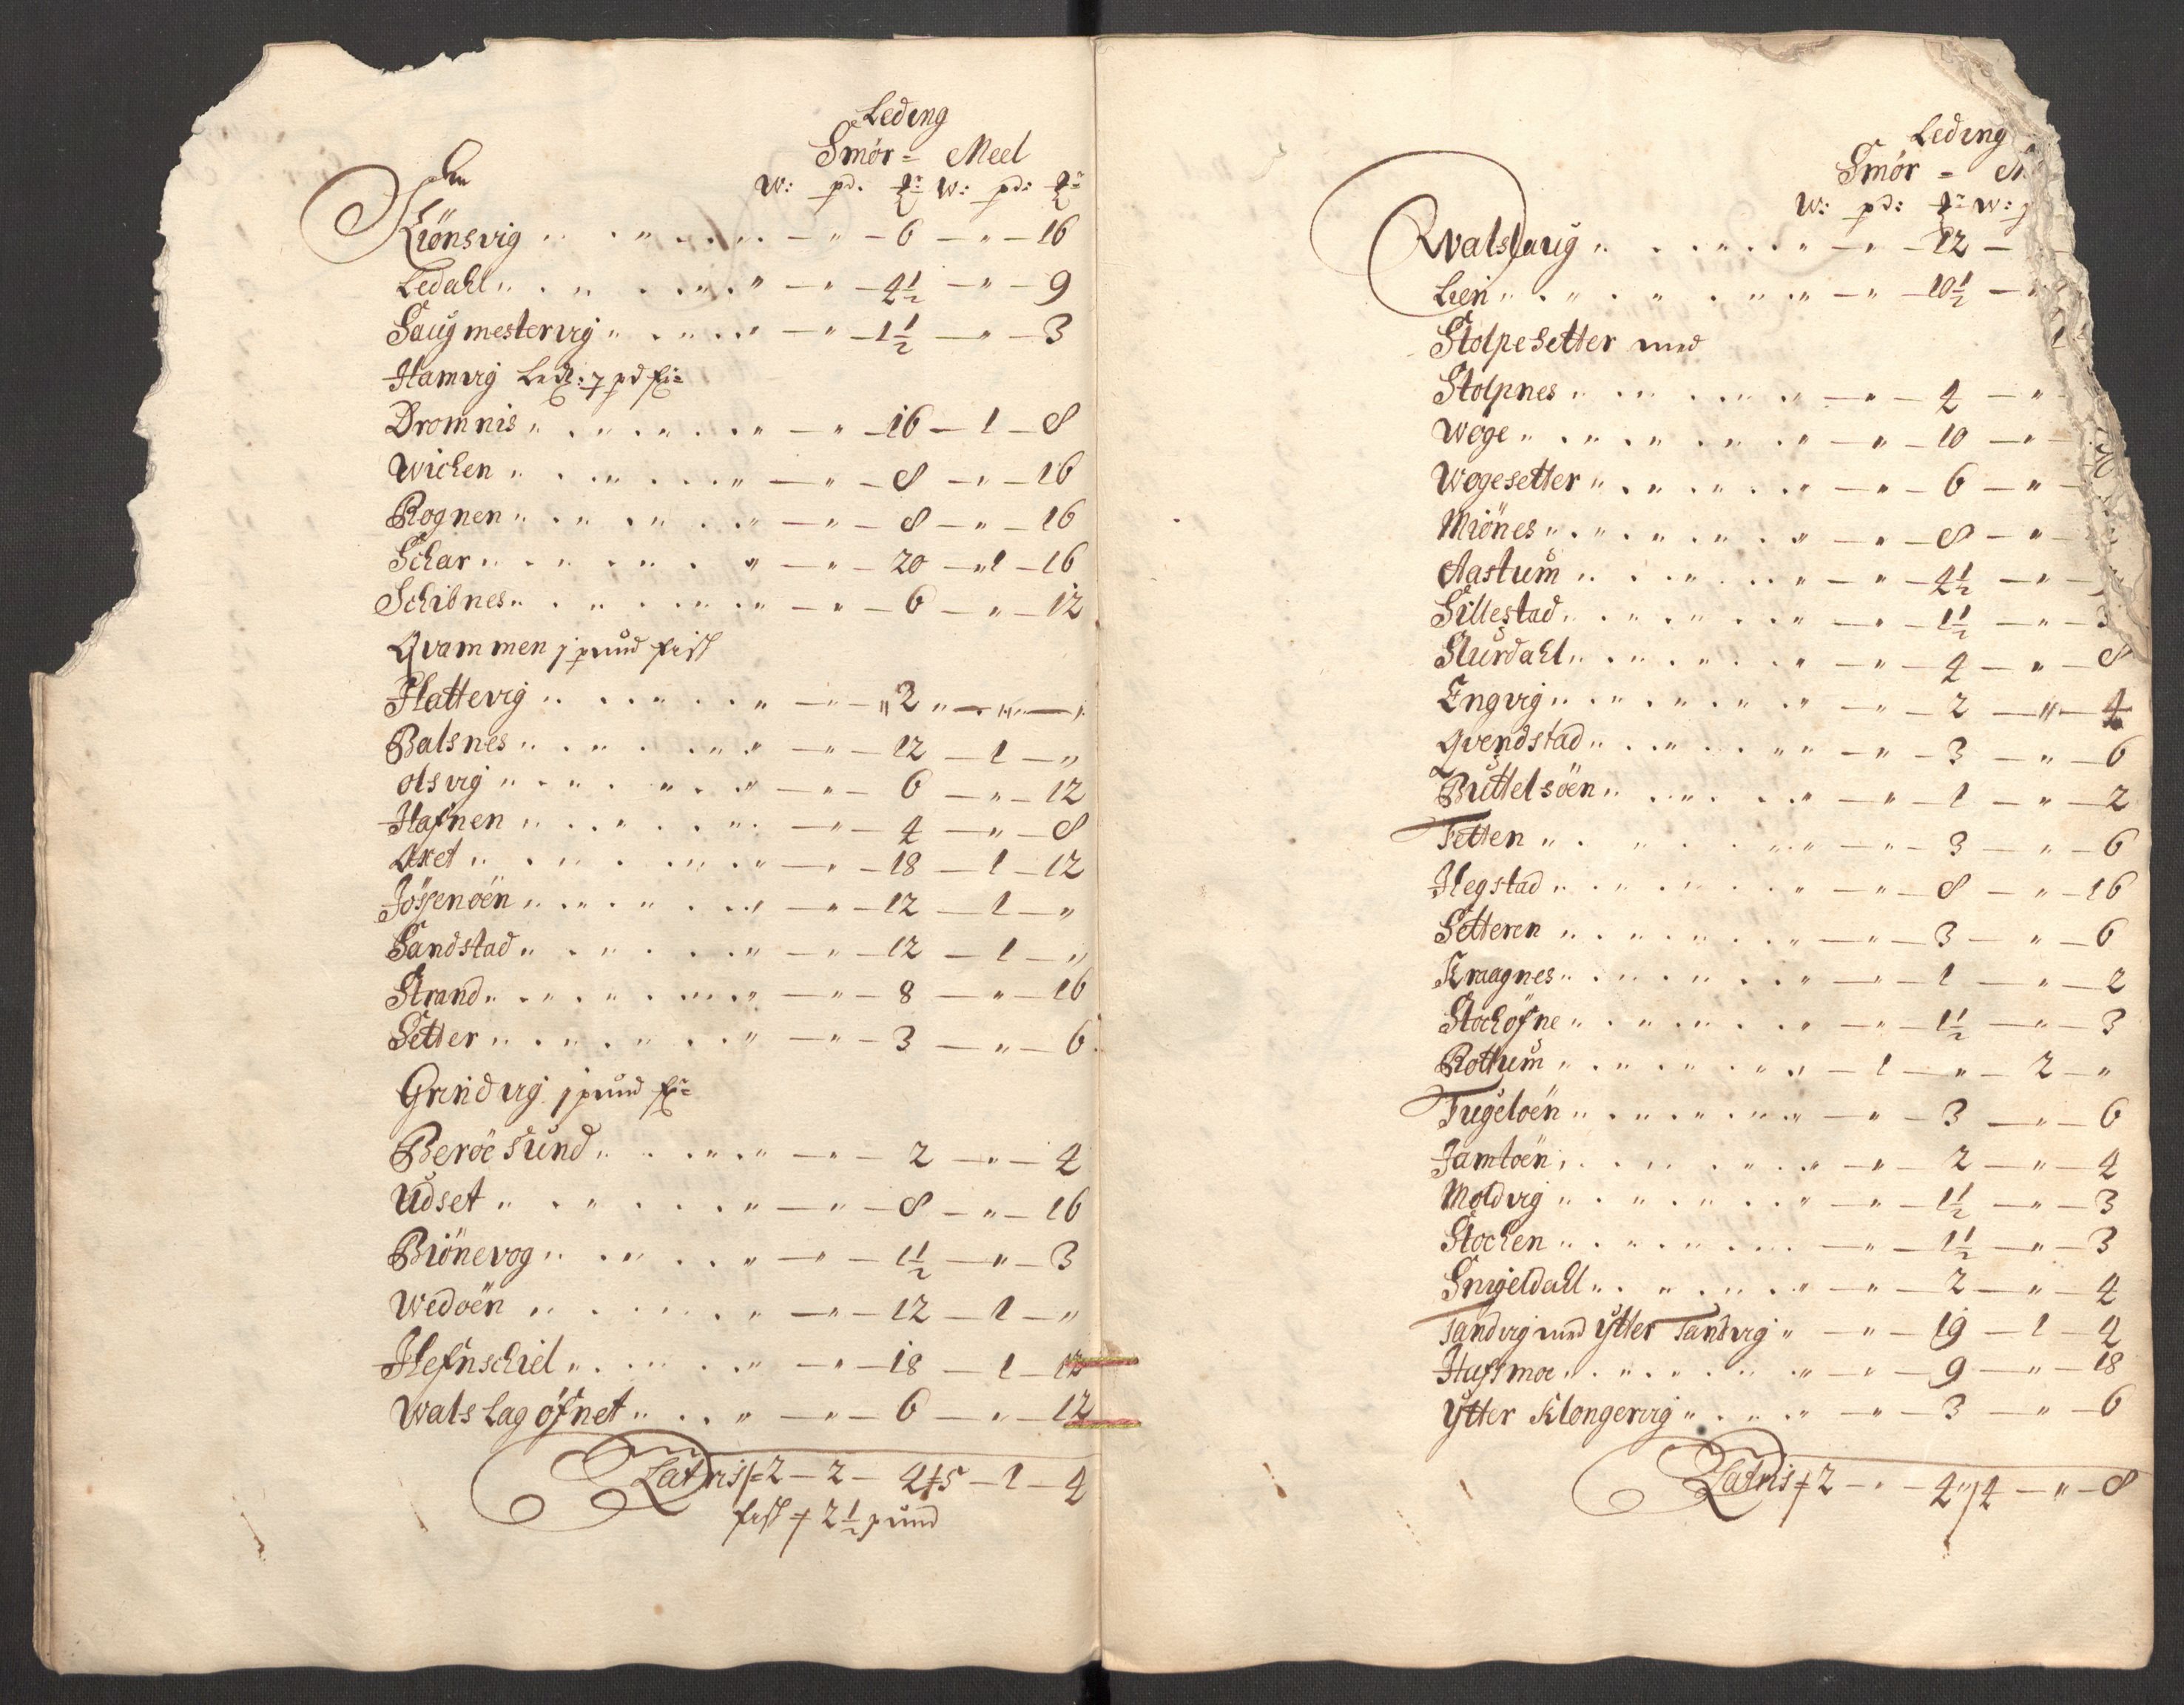 Leding
Smör = Meel
W: pd. W: pd:
Kiönsvig " . " . " . " — " — 6 — " — 16
Ledahl " . " . " . " — " — 4½ — " — 9
Saugmestervig " . " . " — " — 1½ — " — 3
Hamvig
Dromnis " . " . " . " — " — 16 — 1 — 8
Wichen " . " . " — " — 8 — " — 16
Rognen " . " . " . " — " — 8 — " — 16
Schar " . " . " . " — " — 20 — 1 — 16
Schibnes " . " . " . " — " — 6 — " — 12
Qvammen j pund fisk
Flattevig " . " . " — " — 2 " — " — "
Balsnes " . " . " . " — " — 12 — 1 — "
Olsvig " . " . " . " — " — 6 — " — 12
Hafnen " . " . " — " — 4 — " — 8
Aret " . " . " . " — " — 18 — 1 — 12
Jössenöen " . " . " . " — " — 12 — 1 — "
Sandstad " . " . " — " — 12 — 1 — "
Strand " . " . " . " — " — 8 — " — 16
Setter " . " . " . " — " — 3 — " — 6
Grindvig j pund
Beröesund " . " . " — " — 2 — " — 4
Udset " . " . " — " — 8 — " — 16
Biönevog " . " . " — " — 1½ — " — 3
Wedöen " . " . " — " — 12 — 1 — "
Hefnschiel " . " . " — " — 18 — 1 — 12
Walslagöfnet " . " — " — 6 — " — 12
Latris 2 — 2 — 4 5 — 1 — 4
fisk 2½ pund
Leding
Smör =
W: pd: W:
Qvalslaug " . " . " — " — 12 —
Lien " . " . " . " — " — 10½ —
Stolpesetter med
Stolpnes " . " . " — " — 4 — "
Woge " . " . " . " — " — 10 — "
Wogesetter " . " . " . " — " — 6 — "
Miönes " . " . " . " — " — 8 — "
Aastum " . " . " — " — 4½ — "
Sillestad " . " . " — " — 1½ — " — 3
Sturdahl " . " . " — " — 4 — " — 8
Engvig " . " . " . " — " — 2 — " — 4
Qvendstad " . " . " — " — 3 — " — 6
Buttelsöen " . " . " — " — 1 — " — 2
Tetten " . " . " — " — 3 — " — 6
Hegstad " . " . " — " — 8 — " — 16
Setteren " . " . " . " — " — 3 — " — 6
Kraagnes " . " . " — " — 1 — " — 2
Stochöfne " . " . " — " — 1½ — " — 3
Rottum " . " . " . " — 1 — " — 2 — "
Fugelöen " . " . " . " — " — 3 — " — 6
Jamtöen " . " . " — " — 2 — " — 4
Moldvig " . " . " — " — 1½ — " — 3
Stochen " . " . " — " — 1½ — " — 3
Snigeldahl " . " . " — " — 2 — " — 4
Tandvig med ytter Tandvig " — " — 19 — 1 — 4
Hafsmoe " . " . " — " — 9 — " — 18
Ytter Klongervig " . " . " — " — 3 — " — 6
Latris 2 — " — 4 " 4 — " — 8